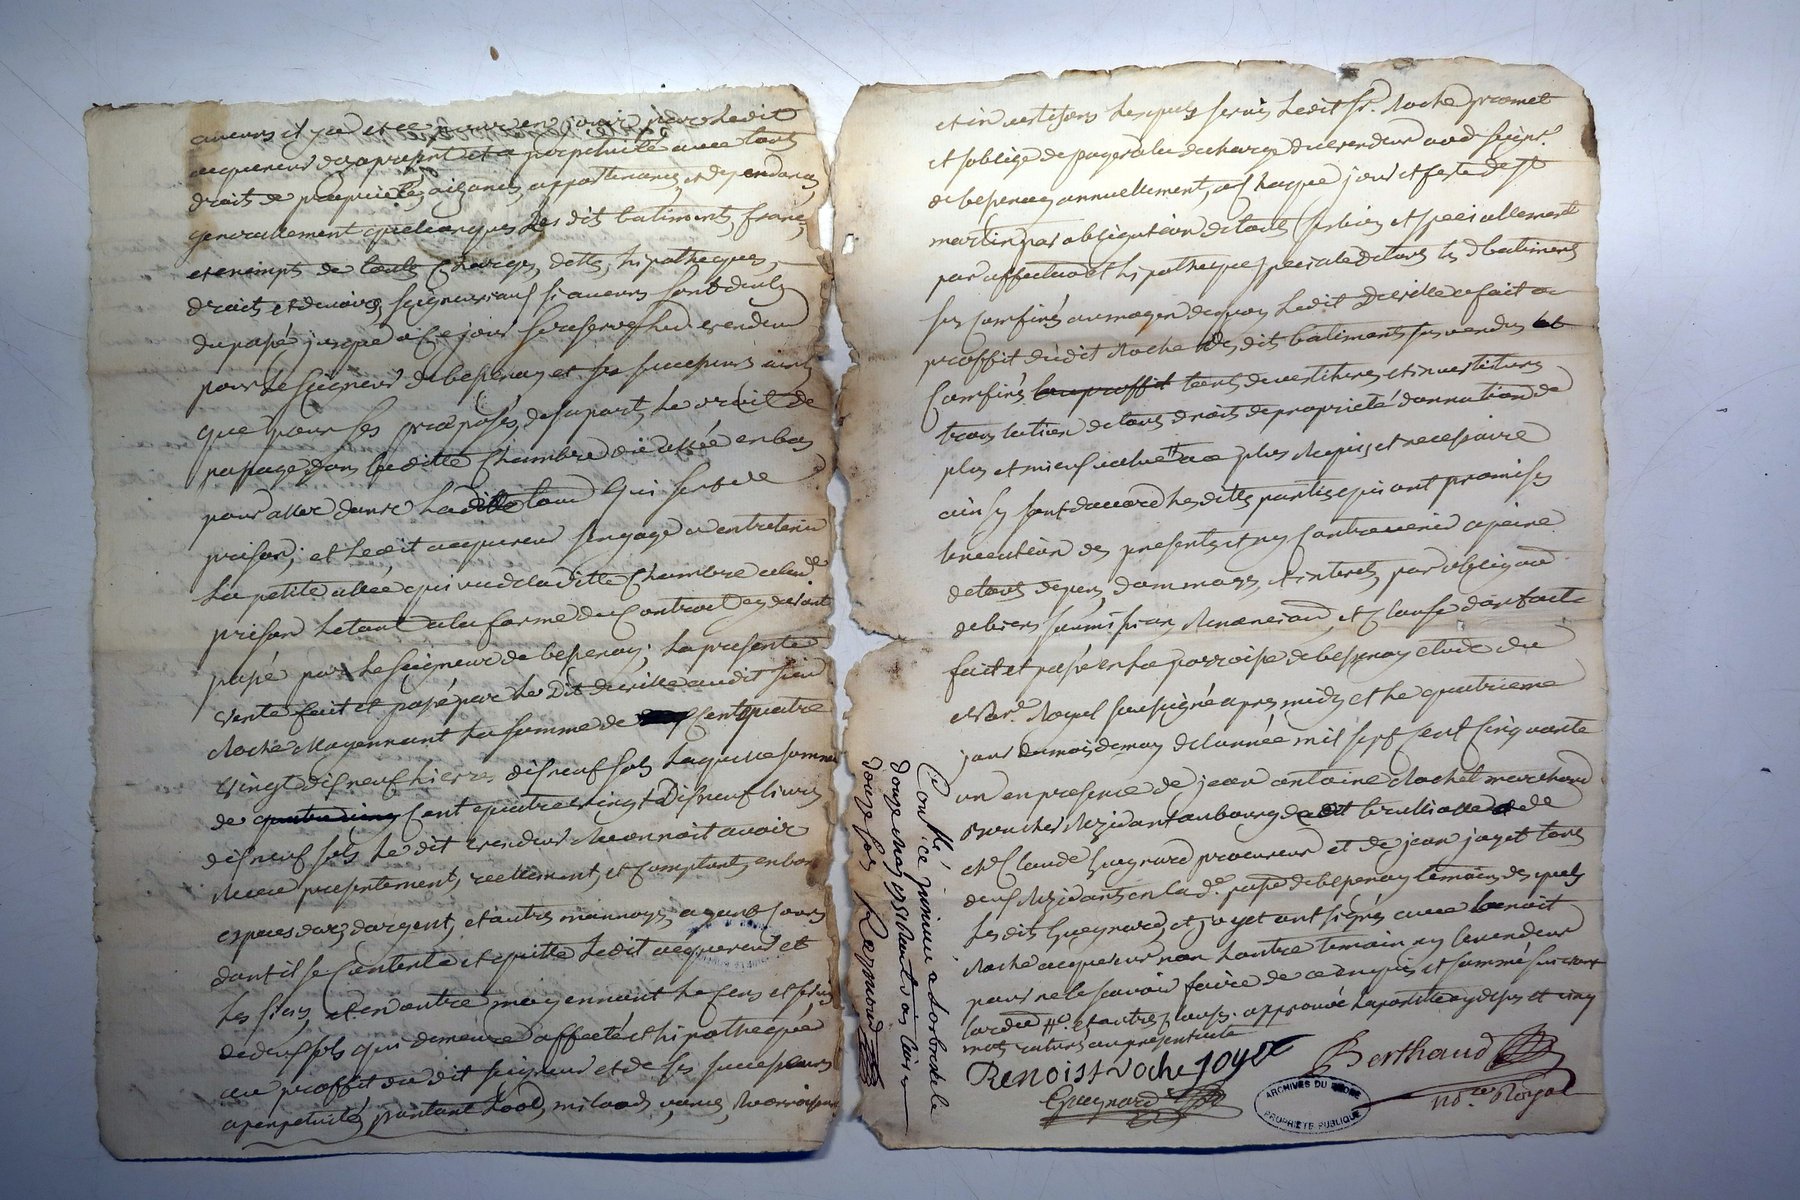 acquereur des apresent et a perpetuité avec tous
droits de propriété, aizances, appartenances, et dependances
generallement quelconques les dits batiments, francs
et exempts de touts charges, dettes, hipotheques,
droits et devoirs seigneuriaux si aucuns sont deubs
du passé jusque a ce jour se reserve led. vendeur
pour le seigneur de bessenay et ses successeurs ainsi
que pour ses préposés de sa part, le droit de
passage dans laditte chambre du costé en bas
pour aller dans la tour qui sert de
prison; et ledit acquereur s'engage a entretenir
la petite allée qui va de laditte chambre a lad.e
prison le tout a la forme du contract cy devant
passé par le seigneur de bessenay; la presente
vente fait et passé par le dit deville audit sieur
Roche moyennant la somme de cent quatre
vingt dix neuf livres dix neuf sols laquelle somme
de cent quatre vingt dix neuf livres
dix neuf sols le dit vendeur reconnoit avoir
receu presentement, reellement, et comptant, en bon
especes d'or, d'argent, et autres monnoys, ayant cours
dont il se contente et quitte ledit acquereur et
les siens, et en outre moyennant le cens et servis
de deux sols qui demeure affecté et hipothequé
au proffit du dit seigneur et de ses successeurs
a perpetuité, portant lods, milods, venes, reconnoissances
et investisons lesquels servis ledit Sr. Roche promet
et soblige de payer a la decharge du vendeur aud. seignr.
de bessenay annuellement, a chaque jour et feste de St
martin par obligation de touts ses biens et speciallement
par affectaon et hipotheque speciale de tous les d. batiments
ses confins au moyen de quoy ledit deville a fait au
proffit dudit Roche des dits batiments sus vendus
confinés touts devestitures et investitures
translation de tous droits de propriété donnation de
plus et mieux value ace plus requis et necessaire
ainsy sont d'accord lesdittes parties qui ont promises
l'execution des presentes et n'y contrevenir a peine
de tous depens, dommages, et interets, par obligaon
de biens soumissions renonciaons, et clauses dont acte
fait et passé en la parroisse de bessenay etude du
notre. Royal soussigné apres midy et le quatrieme
jour du mois de may de l'année mil sept cent cinquante
un en presence de jean antoine Rochet marchand
Boucher residant au bourg de
et de Claude Gueynard procureur et de jean joyet tous
deux residants en la de. passe de bessenay temoins desquels
les dits Gueynard et joyet ont signés avec benoit
Roche acquereur non l'autre temoin ny le vendeur
pour ne le savoir faire de ce enquis et sommé
mots raturés au presentacte
Benoist Roche Joyet
Berthaud
Gueynard
notre Royal
Conllé ce jourdui a Larbresle le
douze may 1751
douze sols Raymond
ARCHIVES DU RHONE
PROPRIÉTÉ PUBLIQUE